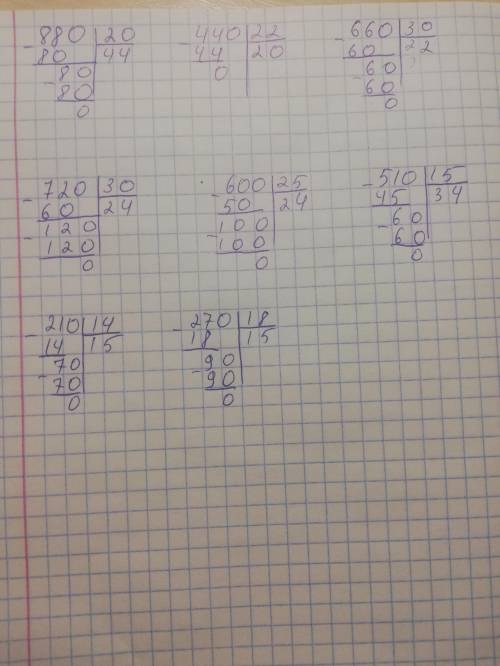 -880 | 20
80 | 44
-80
80
0
-440 | 22
44 | 20
0
-660 | 30
60 | 22
-60
60
0
-720 | 30
60 | 24
-120
120
0
-600 | 25
50 | 24
-100
100
0
-510 | 15
45 | 34
-60
60
0
-210 | 14
14 | 15
-70
70
0
-270 | 18
18 | 15
-90
90
0